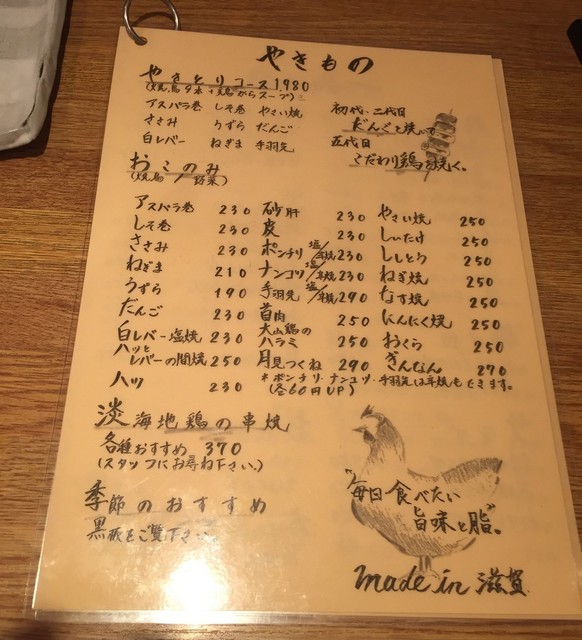 やきもの
やきとりコース 1,980
(焼鳥9本+鶏がらスープ)
アスパラ巻 しそ巻 やさい焼
ささみ うずら だんご
白レバー ねぎま 手羽先
初代、二代目
だんごを焼いて
五代目
こだわり鶏を焼く。
おこのみ
(焼鳥/野菜)
アスパラ巻 230
しそ巻 230
ささみ 230
ねぎま 210
うずら 190
だんご 230
白レバー塩焼 230
ハツと
レバーの間焼 250
ハツ 230
砂肝 230
皮 230
ポンチリ 塩/辛焼 230
ナンコツ 塩/辛焼 230
手羽先 塩/辛焼 290
首肉 250
大山鶏の
ハラミ 250
月見つくね 290
やさい焼 250
しいたけ 250
ししとう 250
ねぎ焼 250
なす焼 250
にんにく焼 250
おくら 250
ぎんなん 270
*ポンチリ・ナンコツ・手羽先は辛焼もできます。
(各60円UP)
淡海地鶏の串焼
各種おすすめ 370
(スタッフにお尋ね下さい。)
季節のおすすめ
黒板をご覧下さい
「毎日食べたい
旨味と脂。
made in 滋賀